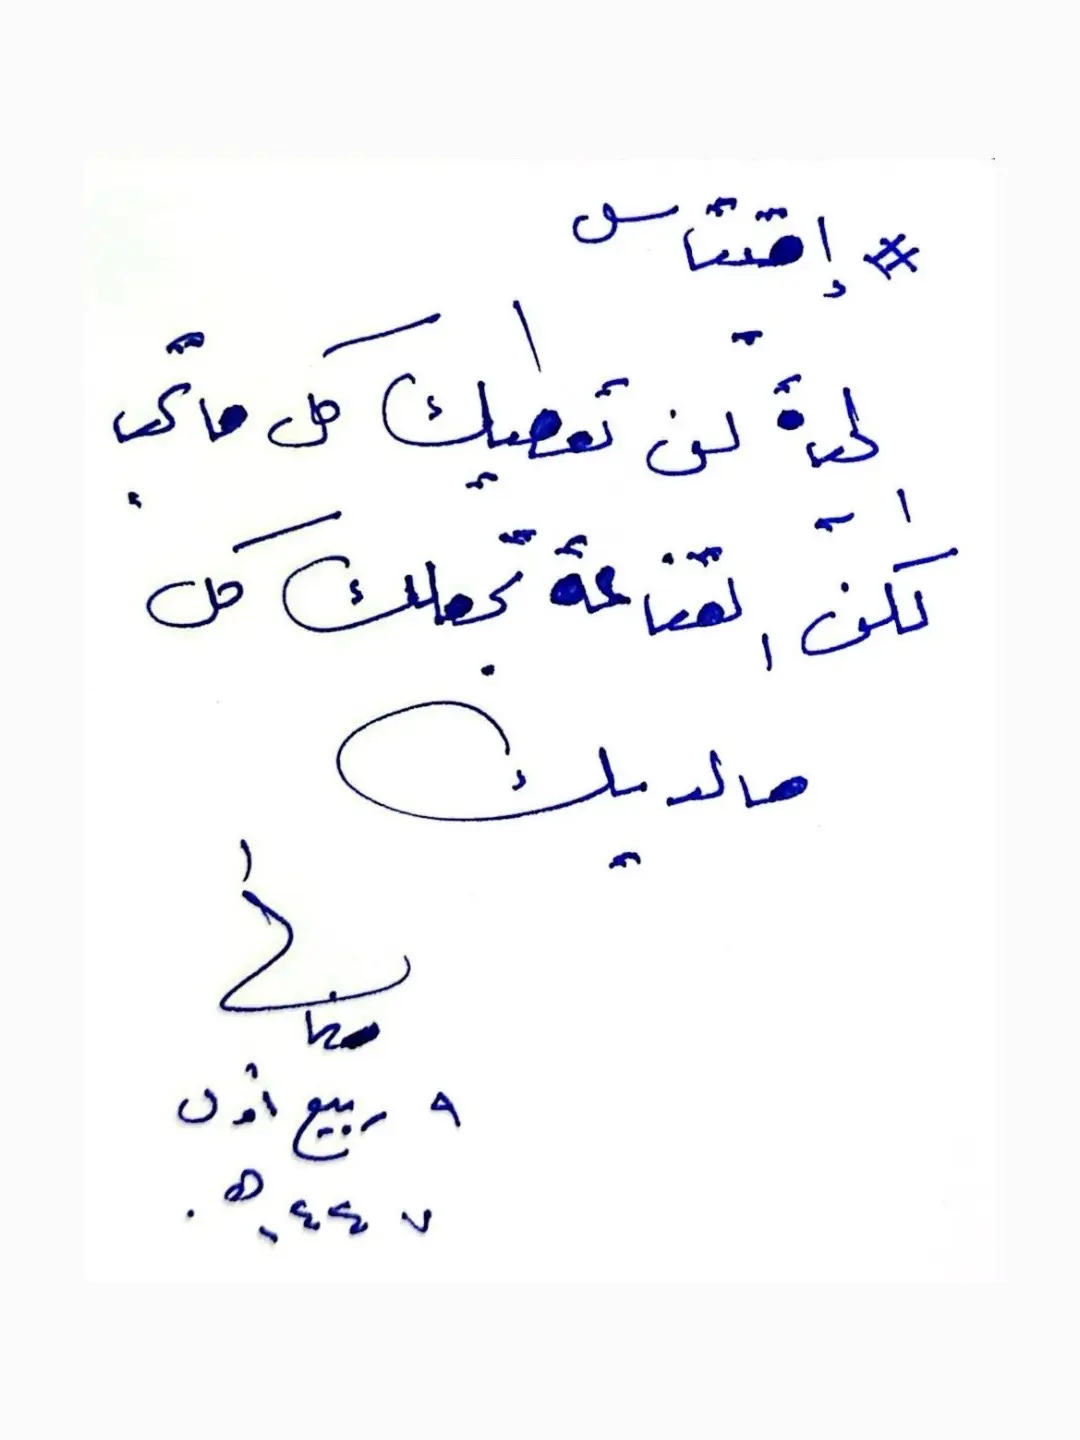 # إقتباس
لحياة لن تعطيك كل ماتحب
لكن القناعة تجعلك كل
مالديك
٩ ربيع أول
١٤٤٧ هـ.